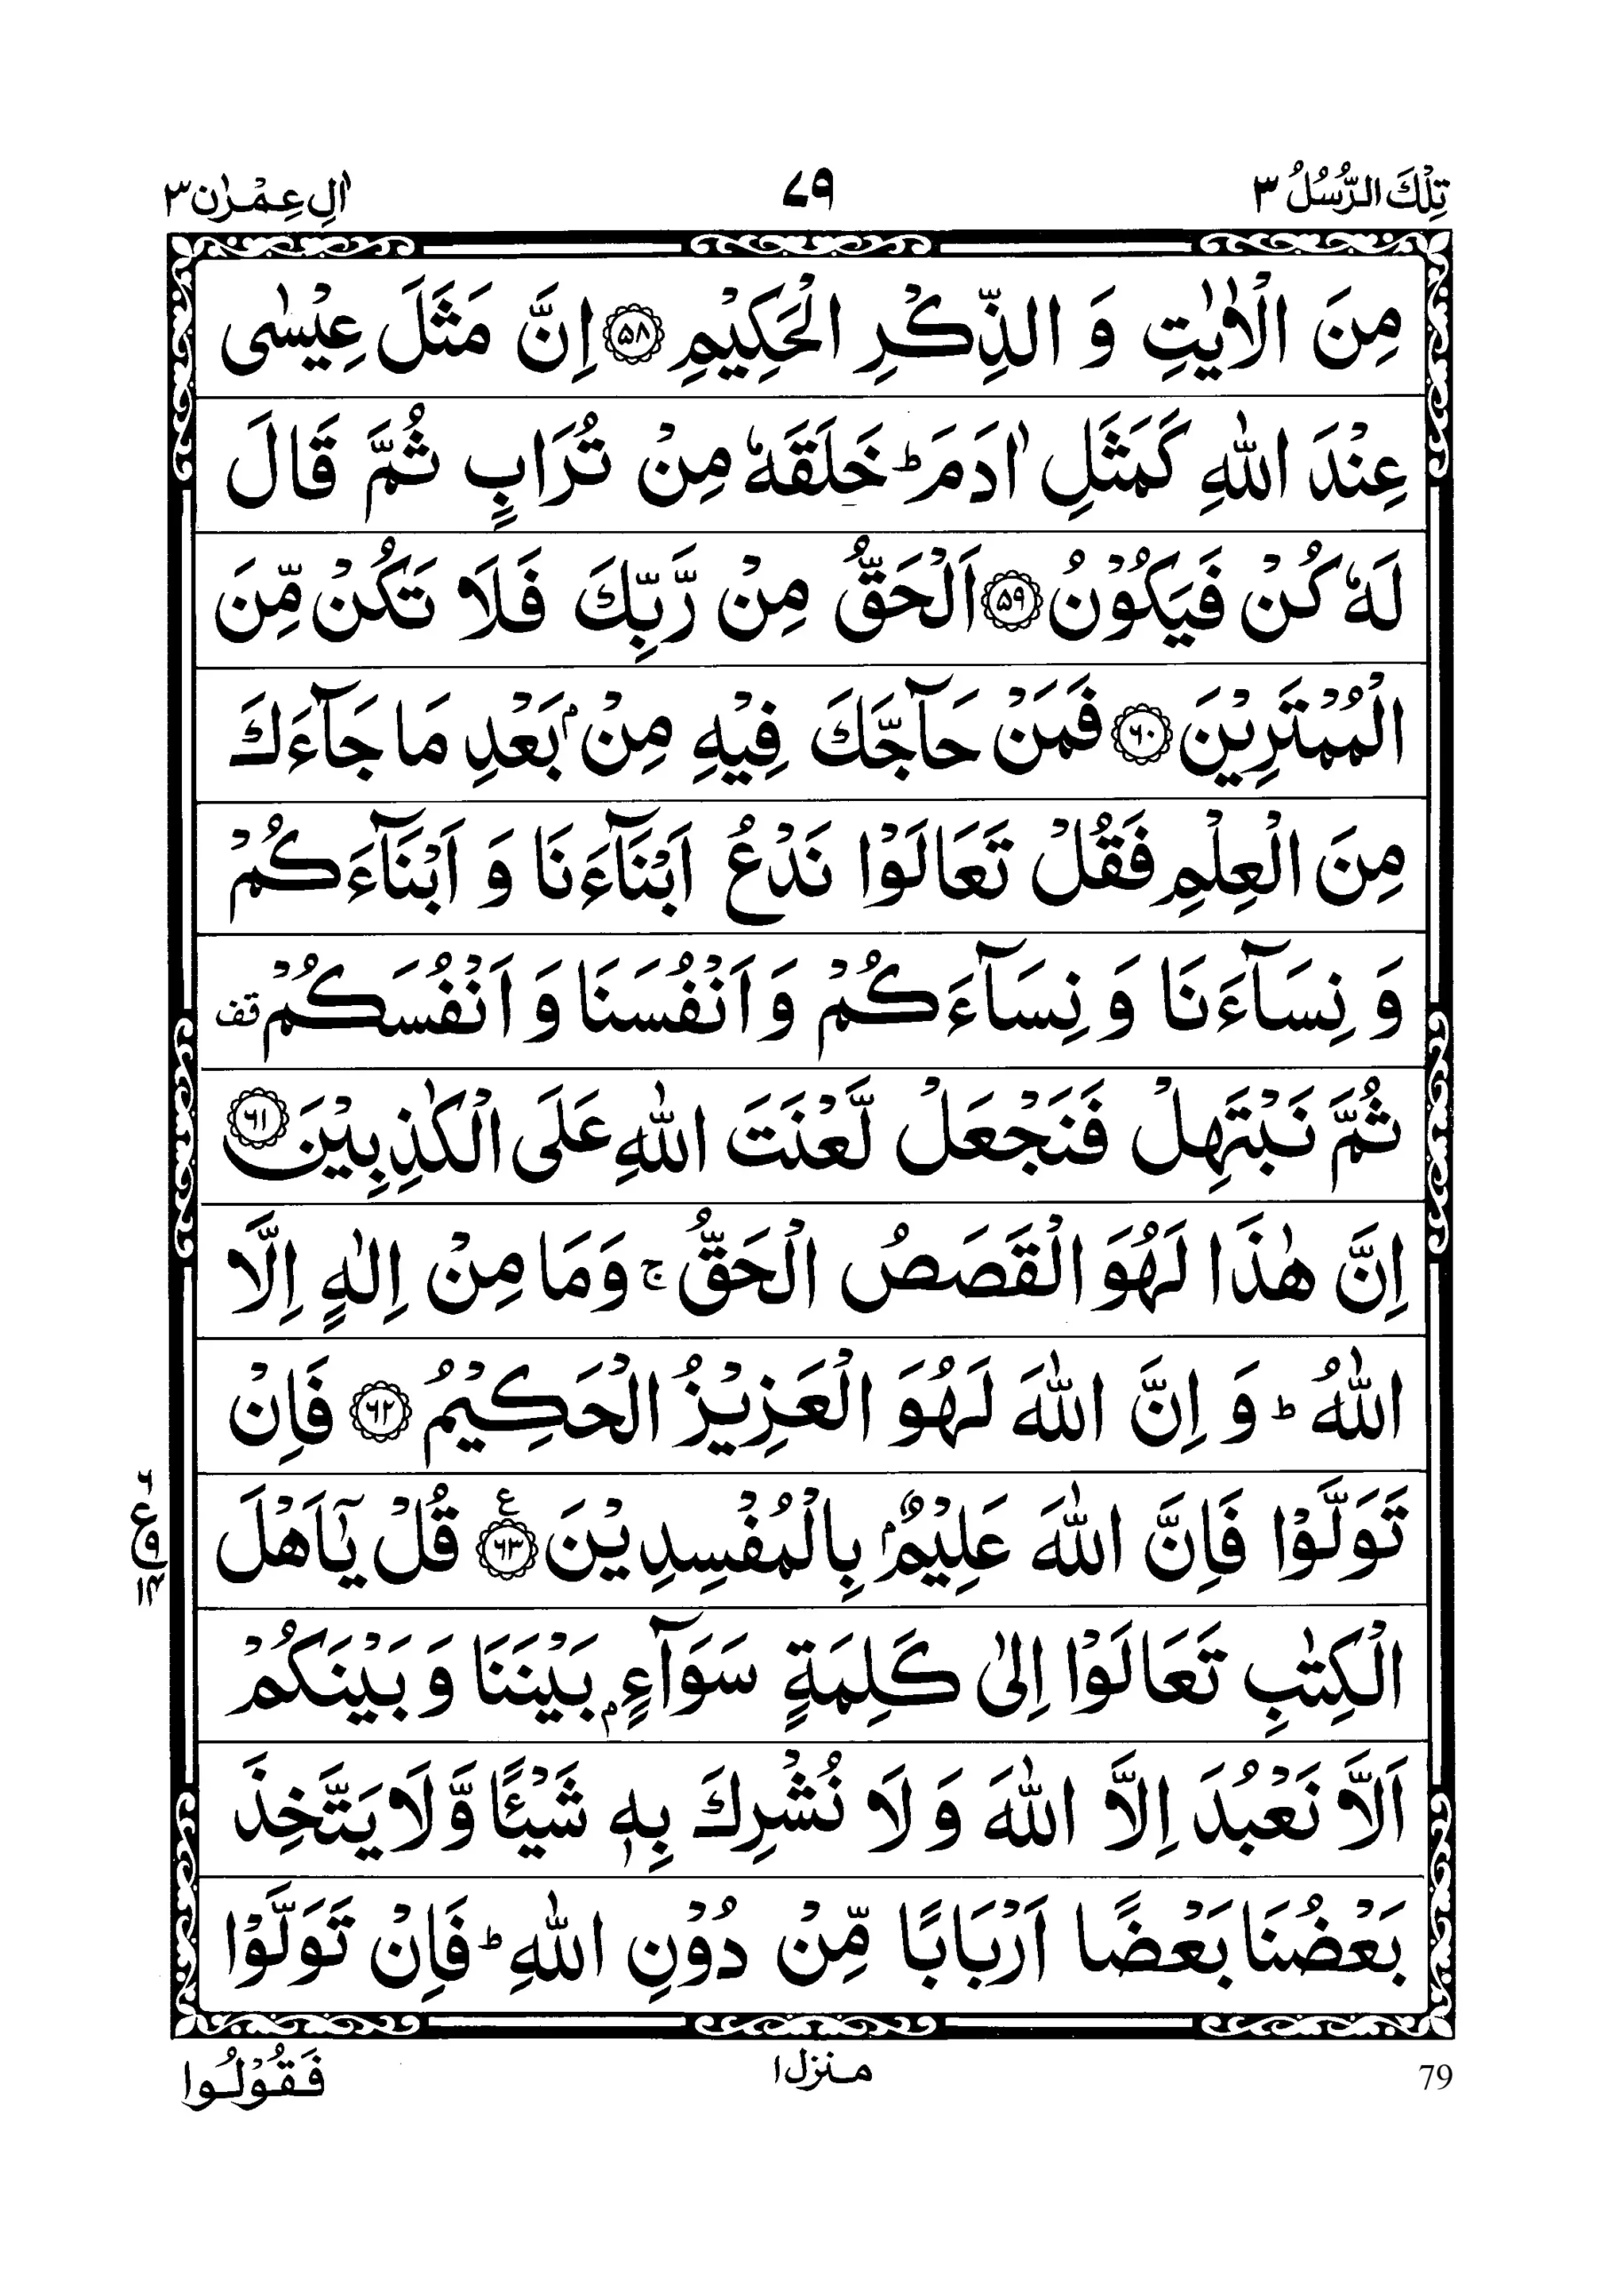 تِلْكَ الرُّسُلُ ٣ ٧٩ اٰلِ عِمْرٰن ٣
مِنَ الْاٰيٰتِ وَ الذِّكْرِ الْحَكِيْمِ ﴿۵۸﴾ اِنَّ مَثَلَ عِيْسٰى
عِنْدَ اللّٰهِ كَمَثَلِ اٰدَمَ ؕ خَلَقَهٗ مِنْ تُرَابٍ ثُمَّ قَالَ
لَهٗ كُنْ فَيَكُوْنُ ﴿۵۹﴾ اَلْحَقُّ مِنْ رَّبِّكَ فَلَا تَكُنْ مِّنَ
الْمُمْتَرِيْنَ ﴿۶۰﴾ فَمَنْ حَآجَّكَ فِيْهِ مِنْۢ بَعْدِ مَا جَآءَكَ
مِنَ الْعِلْمِ فَقُلْ تَعَالَوْا نَدْعُ اَبْنَآءَنَا وَ اَبْنَآءَكُمْ
وَ نِسَآءَنَا وَ نِسَآءَكُمْ وَ اَنْفُسَنَا وَ اَنْفُسَكُمْ قف
ثُمَّ نَبْتَهِلْ فَنَجْعَلْ لَّعْنَتَ اللّٰهِ عَلَى الْكٰذِبِيْنَ ﴿۶۱﴾
اِنَّ هٰذَا لَهُوَ الْقَصَصُ الْحَقُّ ۚ وَمَا مِنْ اِلٰهٍ اِلَّا
اللّٰهُ ؕ وَ اِنَّ اللّٰهَ لَهُوَ الْعَزِيْزُ الْحَكِيْمُ ﴿۶۲﴾ فَاِنْ
تَوَلَّوْا فَاِنَّ اللّٰهَ عَلِيْمٌۢ بِالْمُفْسِدِيْنَ ﴿۶۳﴾ ع قُلْ يٰۤاَهْلَ
الْكِتٰبِ تَعَالَوْا اِلٰى كَلِمَةٍ سَوَآءٍۭ بَيْنَنَا وَ بَيْنَكُمْ
اَلَّا نَعْبُدَ اِلَّا اللّٰهَ وَ لَا نُشْرِكَ بِهٖ شَيْـًٔا وَّلَا يَتَّخِذَ
بَعْضُنَا بَعْضًا اَرْبَابًا مِّنْ دُوْنِ اللّٰهِ ؕ فَاِنْ تَوَلَّوْا
79 منزل ١ فَقُوْلُوا